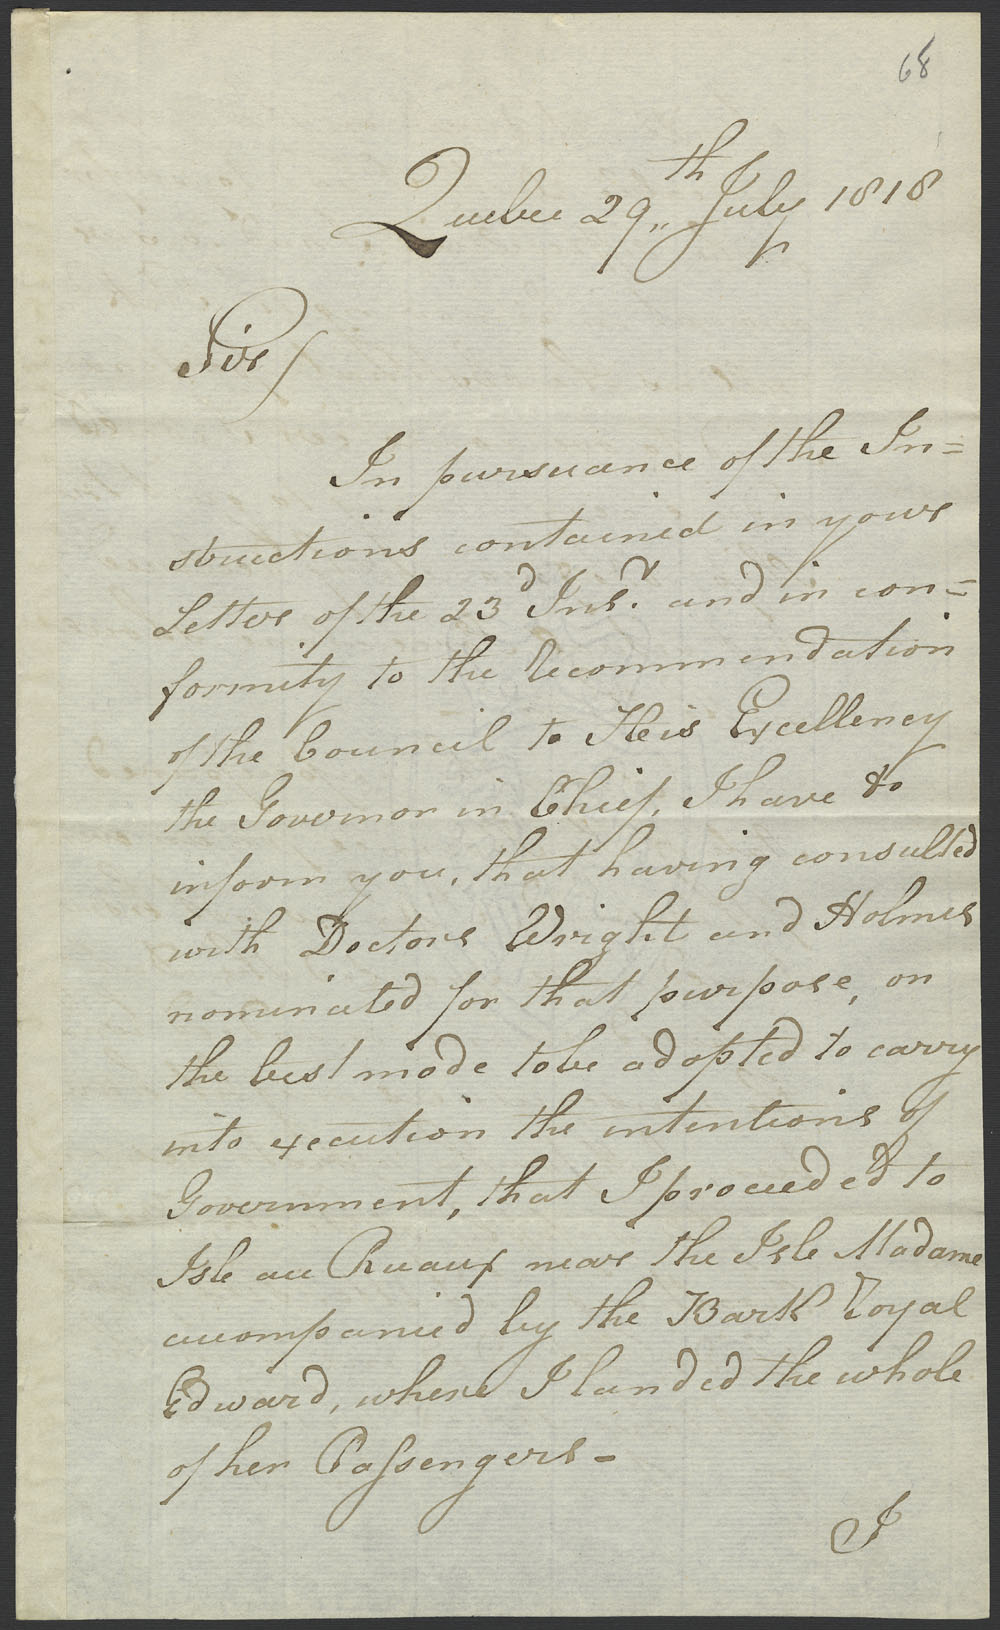 68
Quebec 29th July 1818
Sir/
In pursuance of the In=
structions contained in your
Letter of the 23d Inst. and in con=
formity to the Recommendation
of the Council to Heis Excellency
the Governor in Chief, I have to
inform you, that having consulted
with Doctors Wright and Holmes
nominated for that purpose, on
the best mode to be adopted to carry
into execution the intentions of
Government, that I proceeded to
Isle au Ruaux near the Isle Madame
accompanied by the Bark Royal
Edward, where I landed the whole
of her Passengers -
I